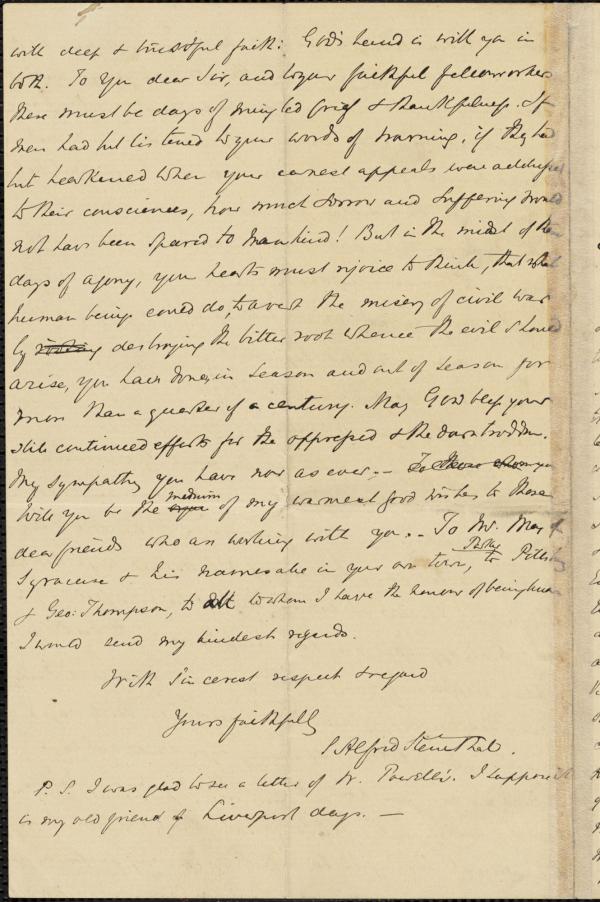 with deep & trustful faith: God's hand is with you in
both. To you dear Sir, and to your faithful fellow workers
there must be days of mingled grief & thankfulness. If
men had but listened to your words of warning, if they had
but hearkened when your earnest appeals were addressed
to their consciences, how much sorrow and suffering would
not have been spared to mankind! But in the midst of these
days of agony, your hearts must rejoice to think, that what
human beings could do, to avert the misery of civil war
by destroying the bitter root whence the evil should
arise, you have done, in season and out of season for
more than a quarter of a century. May God bless your
still continued efforts for the oppressed & the downtrodden.
My sympathy you have now as ever. – To those whom you
Will you be the medium of my warmest good wishes to those
dear friends who are working with you. – To Mr. May of
Syracuse & his namesake in your own town, to Pillsbury
& Geo: Thompson, to all to whom I have the honour of being known
I would send my kindest regards.
With sincerest respect & regard
Yours faithfully
S Alfred Steinthal.
P. S. I was glad to see a letter of W. Powell's. I suppose it
is my old friend of Liverpool days. –